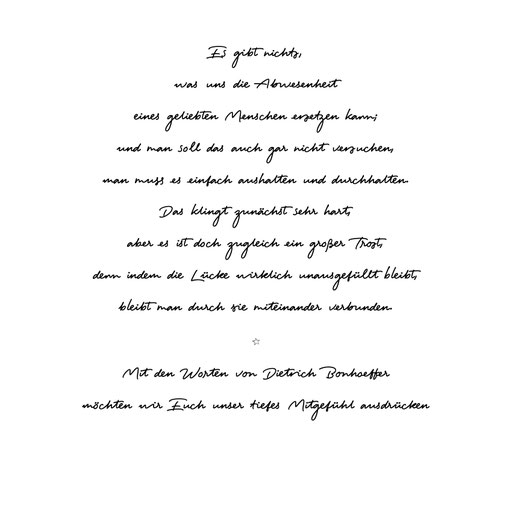 Es gibt nichts,
was uns die Abwesenheit
eines geliebten Menschen ersetzen kann;
und man soll das auch gar nicht versuchen,
man muss es einfach aushalten und durchhalten.
Das klingt zunächst sehr hart,
aber es ist doch zugleich ein großer Trost,
denn indem die Lücke wirklich unausgefüllt bleibt,
bleibt man durch sie miteinander verbunden.
☆
Mit den Worten von Dietrich Bonhoeffer
möchten wir Euch unser tiefes Mitgefühl ausdrücken